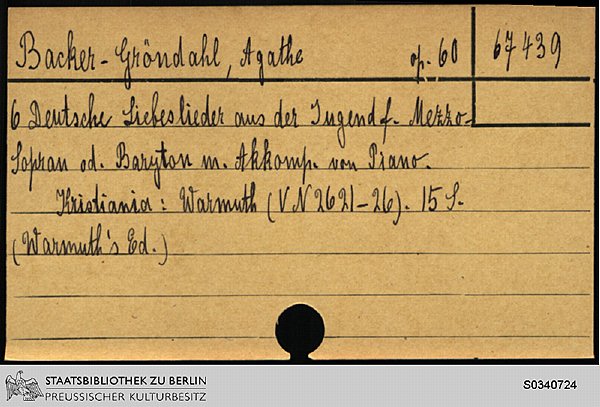 Backer-Gröndahl, Agathe op. 60 67439
6 Deutsche Liebeslieder aus der Jugend f. Mezzo-
Sopran od. Baryton m. Akkomp. von Piano.
Kristiania: Warmuth (VN 2621-26). 15 S.
(Warmuth's Ed.)
STAATSBIBLIOTHEK ZU BERLIN
PREUSSISCHER KULTURBESITZ
S0340724